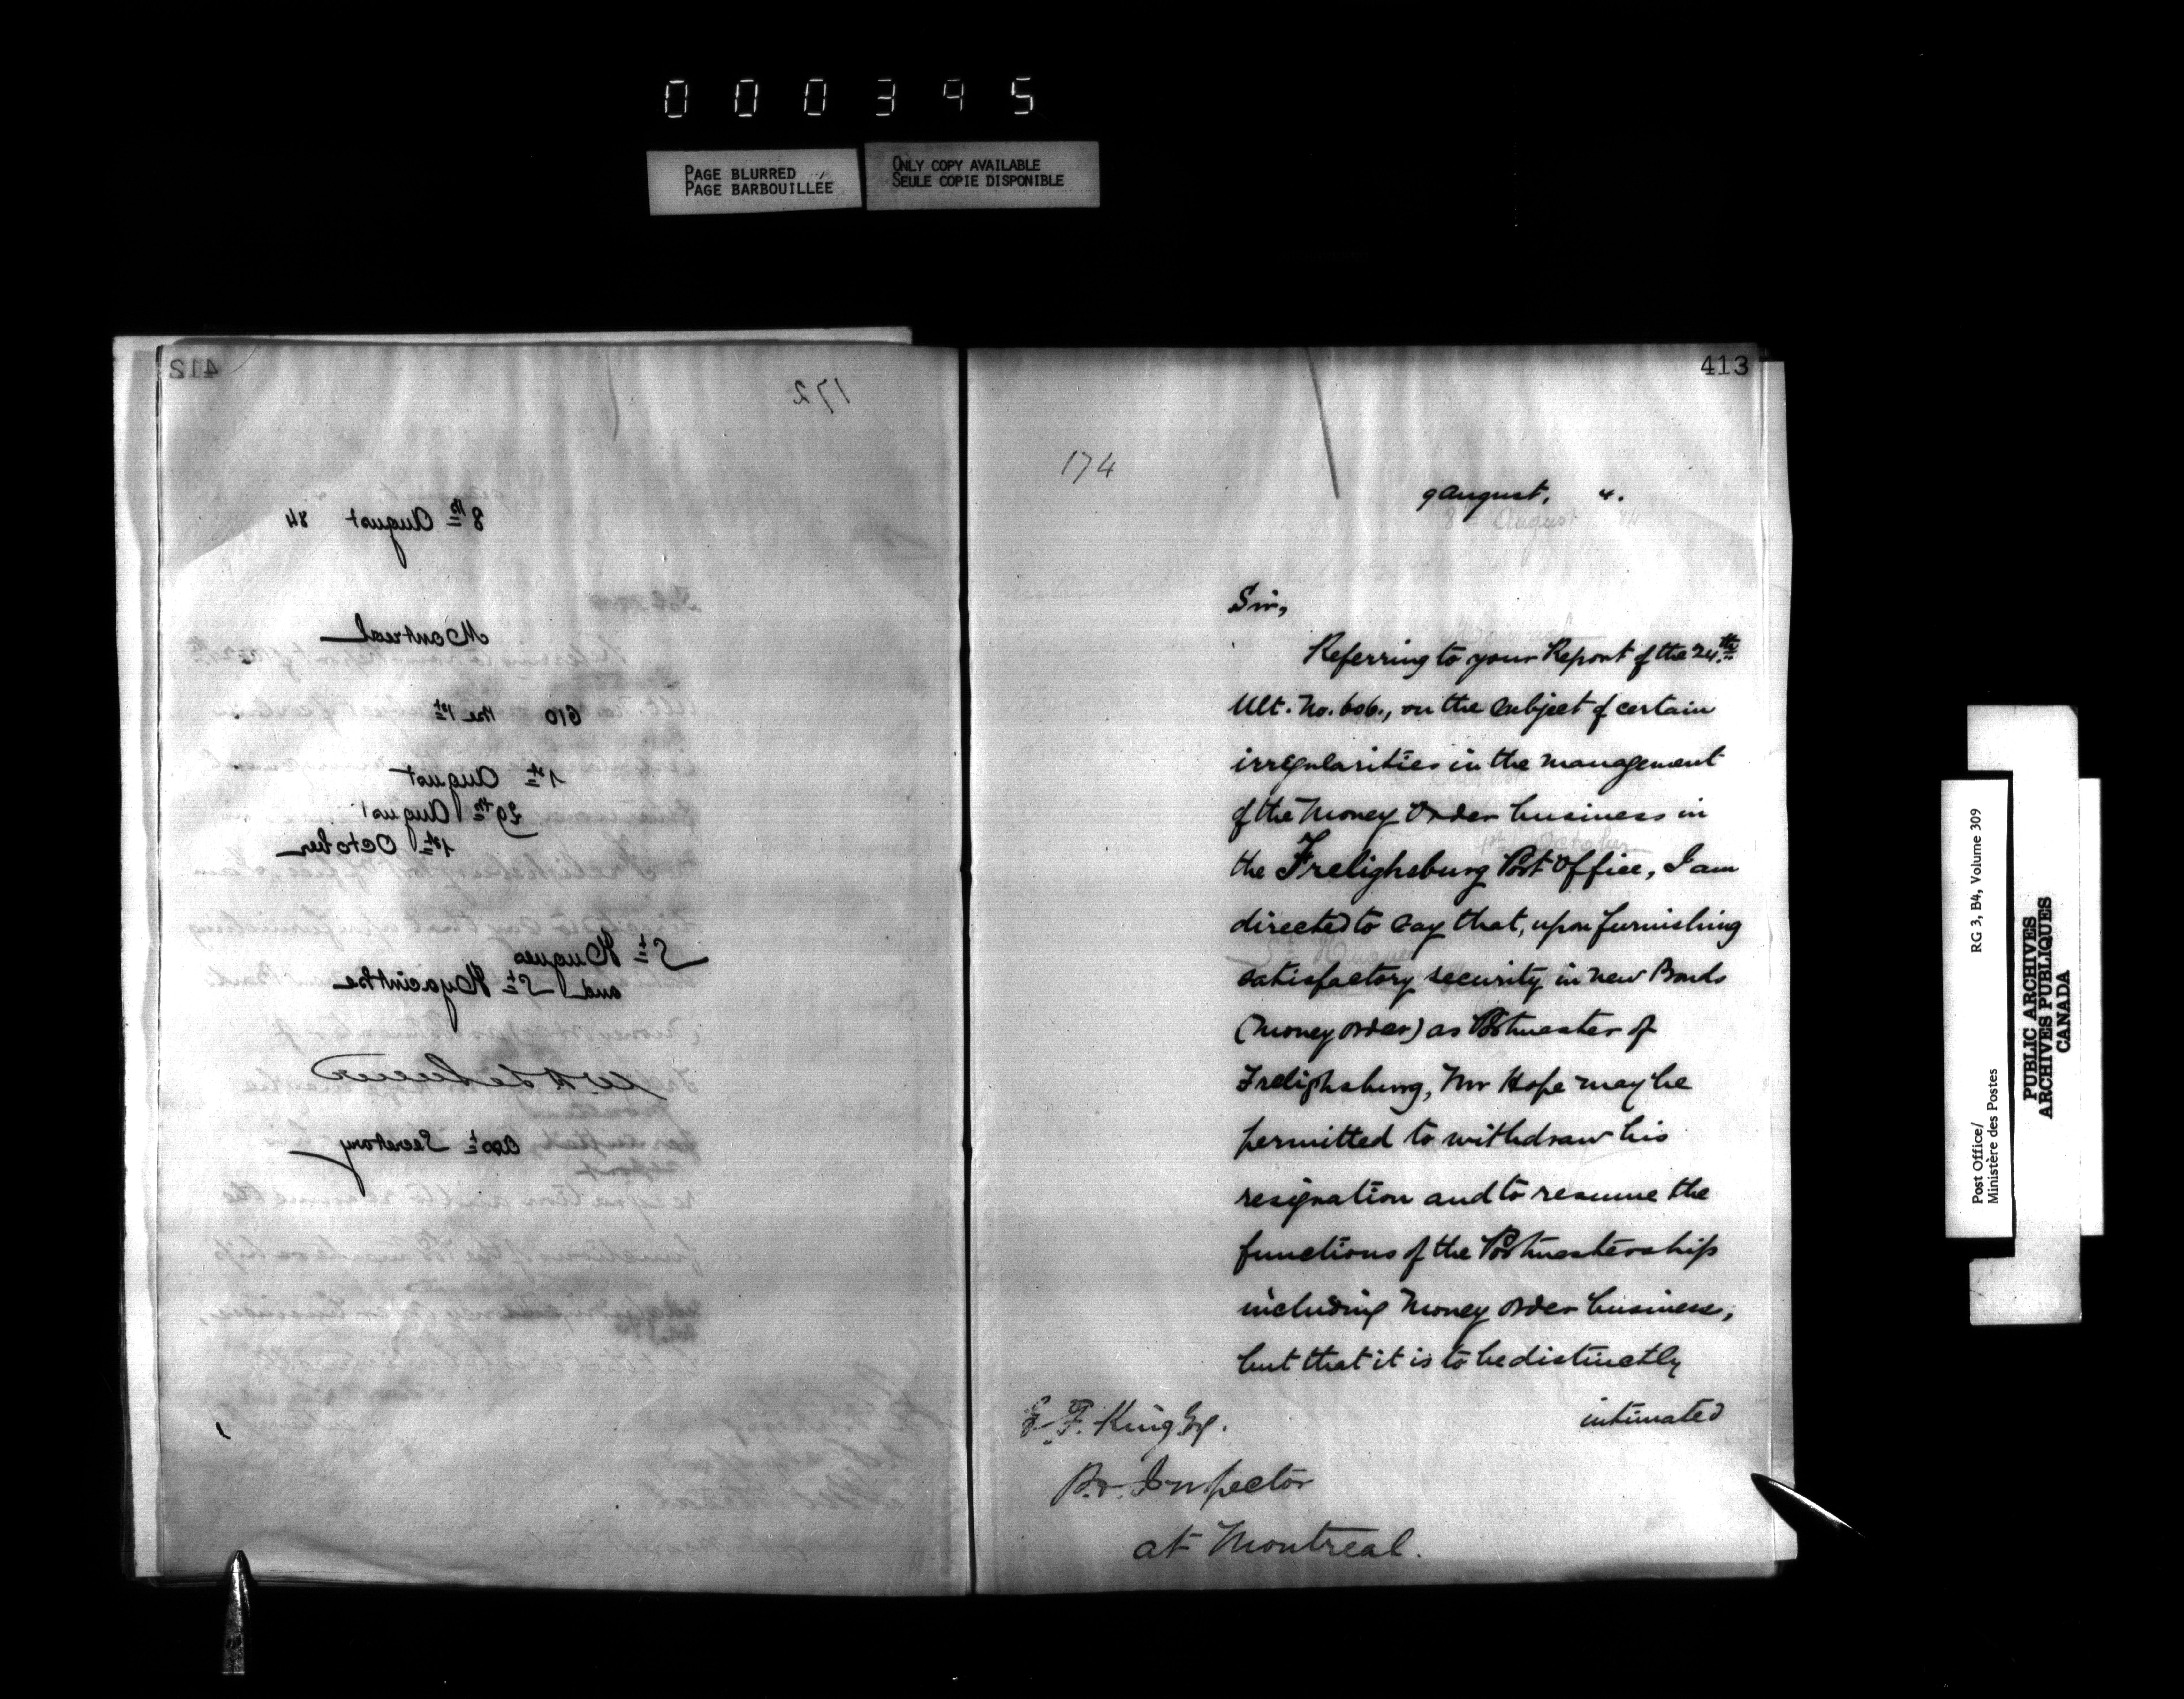 000395
PAGE BLURRED
PAGE BARBOUILLÉE
ONLY COPY AVAILABLE
SEULE COPIE DISPONIBLE
412
172
8th August 84
Montreal
610 the 1st
1st August
29th August
1st October
St Hugues
and St Hyacinthe
Asst Secretary
413
174
9 August, 4.
Sir,
Referring to your Report of the 24th
Ult. No. 606., on the subject of certain
irregularities in the management
of the Money Order business in
the Frelighsburg Post Office, I am
directed to say that, upon furnishing
satisfactory security in new Bonds
(Money Order) as Postmaster of
Frelighsburg, Mr Hope may be
permitted to withdraw his
resignation and to resume the
functions of the Postmastership
including Money Order business,
but that it is to be distinctly
intimated
E. F. King Esq.
P.O. Inspector
at Montreal.
Post Office/ RG 3, B4, Volume 309
Ministère des Postes
PUBLIC ARCHIVES
ARCHIVES PUBLIQUES
CANADA